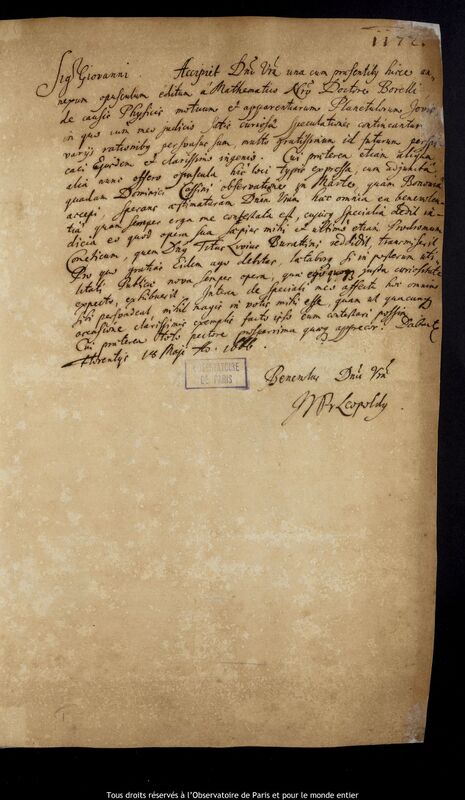 1172.
Sig.r Giovanni. Accipiet Dnõ Vrã una cum præsentibus hisce an-
nexum opusculum editum a Mathematico Nrõ Doctore Borelli
de causis Physicis motuum et apparentiarum Planetulorum Jovis
in quo cum meo judicio satis curiosæ speculationes contineantur
varijs rationibus persuasus sum, multo gratissimum id futurum perspi-
caci Ejusdem et clarissimo ingenio. Cui præterea etiam aliqua
alia nunc offero opuscula hic loci typis expressa, cum adjuncta
quadam Dominici Cassini observatione in Marte, quam Bononia
accepi, sperans æstimaturam Dnem Vram hæc omnia ea benevolen-
tia, quam semper erga me contestata est, cujus specialia dedit in-
dicia eo quod opera sua sæpius mihi et ultimo etiam Prodromum
Cometicum, quem Dnus Titus Livius Burattini reddidit, transmiserit
Pro quo gratias Eidem ago debitas, lætabor si in posterum uti-
litati Publicæ nova semper opera, quæ justa curiositate
expecto, exhibuerit. Interea de speciali meo affectu hoc omnino
sibi persuadeat, nihil magis in votis mihi esse, quam ut quacunque
occasione clarissimis exemplis facto ipso eum contestari possim
Cui præterea toto pectore prosperrima quæque apprecor. Dabam
Florentiæ 18 Maji Ao. 1666
Benevolus Dnis Vræ
Leopoldus
OBSERVATOIRE
DE PARIS
Tous droits réservés à l'Observatoire de Paris et pour le monde entier